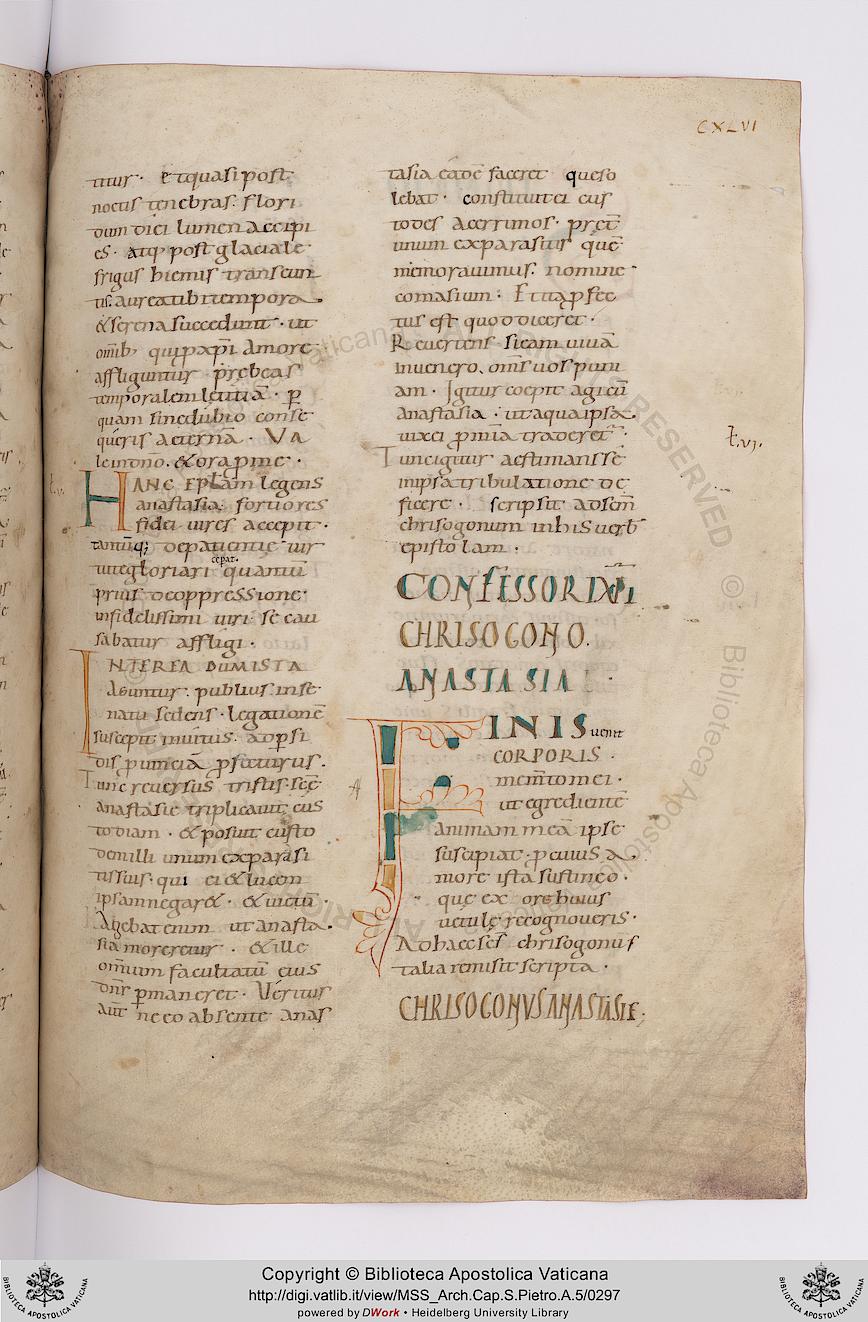 CXLVI
titur · et quasi post
noctis tenebras. flori
dum diei lumen accipi
es · atq; post glaciale
frigus hiemis transeun
tis. aurea tibi tempora ·
& serena succedunt · ut
omīb; qui ꝓ xp̄i amore
affliguntur · prebeas
temporalem letitiā · ꝑ
quam sine dubio conse
queris aeternā · Va
le in dn̄o . & ora pro me ·
t.v.
HANC EPLAM legens
anastasia. fortiores
fidei uires accepit ·
tantūq; de patientie uir
tute gloriari cepit quantū
prius de oppressione
infidelissimi uiri se cau
sabatur affligi ·
INTEREA DUM ISTA
Aguntur . publius inse
natu sedens · legationē
suscepit inuitus . ad ꝑsi
dis ꝓuinciā ꝓfecturus .
Tunc reuersus tristis scē
anastasie triplicauit cus
todiam · & posuit custo
dem illi unum ex parasi
tis suis · qui ei & lucem
ipsam negar& · & uictū ·
Agebat enim ut anasta
sia moreretur . & ille
omnium facultatū eius
dn̄s ꝑmaneret · Veritus
aut̄ ne eo absente anas
tasia eadē faceret que so
lebat · constituit ei cus
todes acerrimos · pret̄
unum ex parasitis quē
memorauimus . nomine
comasium · Et ita ꝓfec
tus est quod diceret ·
Reuertens si eam uiuā
inuenero. om̄s uos puni
am · Igitur coepit agi cū
anastasia · ut aqua ipsa
uix ei ꝓ nimia traderetur ·
t.vj.
Tunc igitur aestimans se
in ipsa tribulatione de
ficere · scripsit ad scm̄
chrisogonum in his uerb
epistolam ·
CONFESSORI XP̄I
CHRISOGONO.
ANASTASIA ·
FINIS uenit
CORPORIS ·
mei mem̄to mei ·
ut egredientē
animam meā ipse
suscipiat · ꝓ cuius a
more ista sustineo ·
que ex ore huius
uetulę recognoueris ·
Ad haec scs̄ chrisogonus
talia remisit scripta ·
CHRISOGONUS ANASTASIE;
Copyright © Biblioteca Apostolica Vaticana
http://digi.vatlib.it/view/MSS_Arch.Cap.S.Pietro.A.5/0297
powered by DWork • Heidelberg University Library
BIBLIOTECA APOSTOLICA VATICANA
BIBLIOTECA APOSTOLICA VATICANA